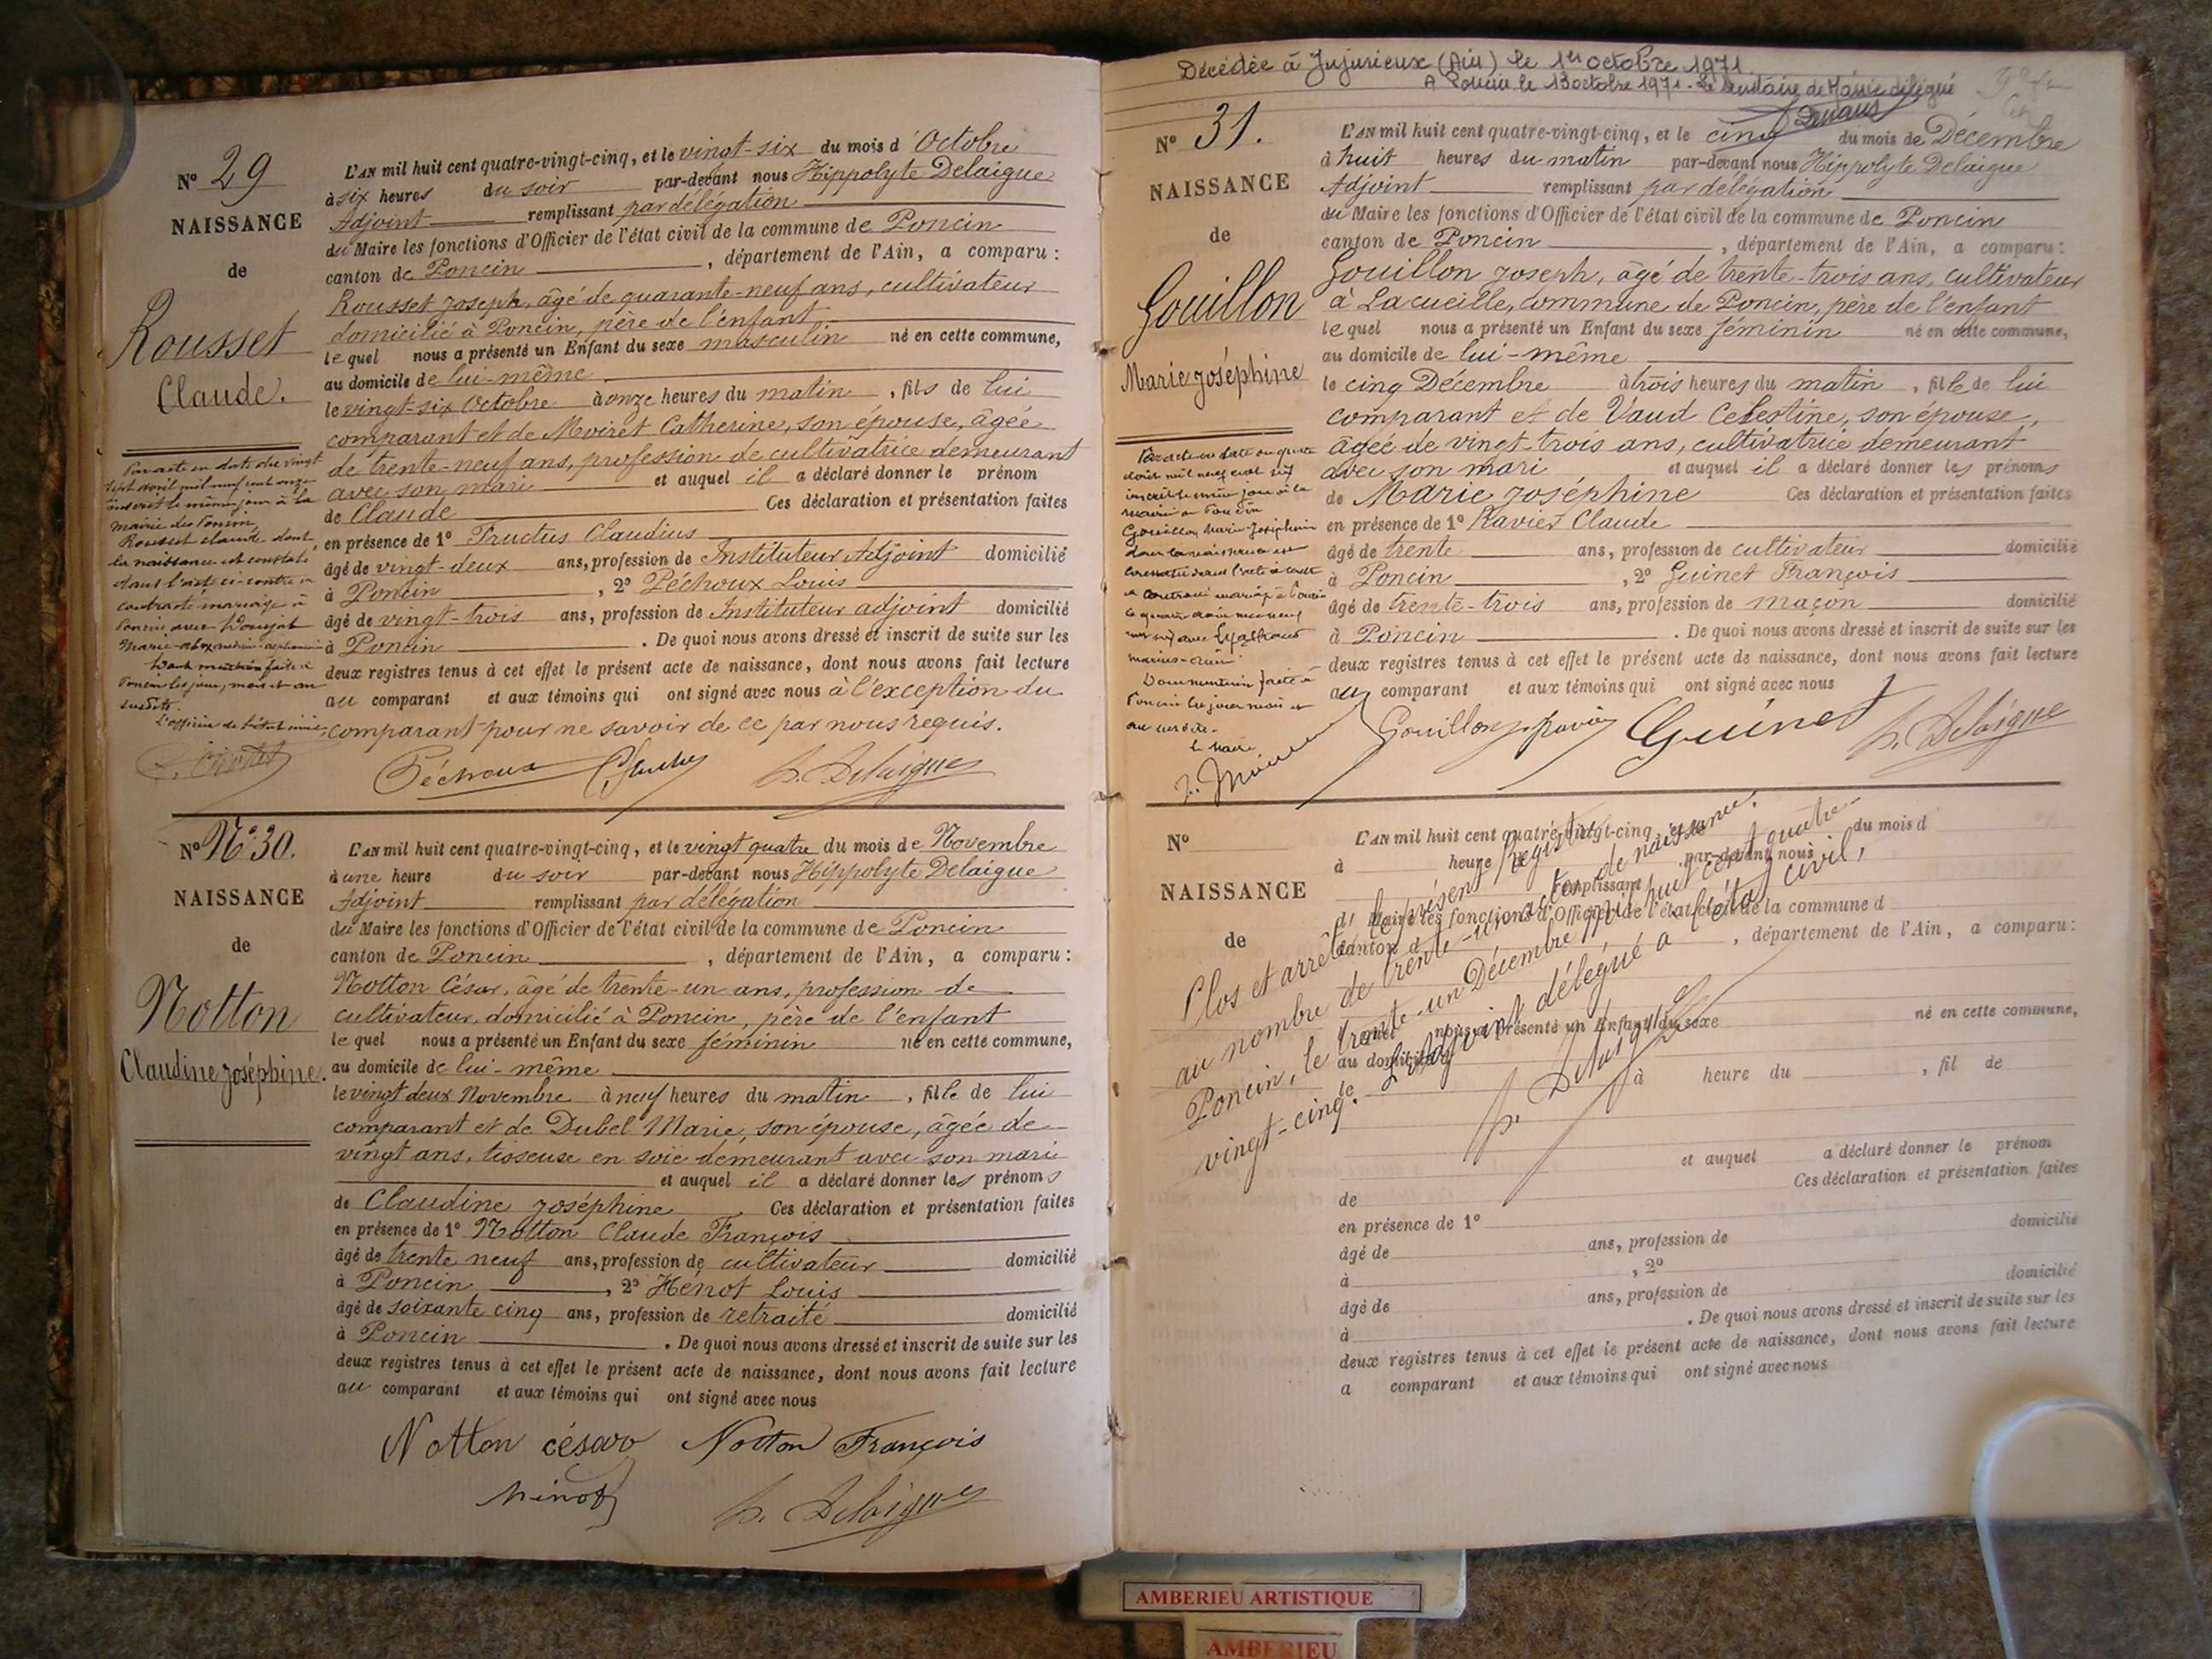 N° 29
NAISSANCE
de
Rousset
Claude.
L'AN mil huit cent quatre-vingt-cinq, et le vingt-six du mois d'Octobre
à six heures du soir par-devant nous Hippolyte Delaigue
Adjoint remplissant par délégation
du Maire les fonctions d'Officier de l'état civil de la commune de Poncin
canton de Poncin , département de l'Ain, a comparu :
Rousset Joseph, âgé de quarante-neuf ans, cultivateur
domicilié à Poncin, père de l'enfant
lequel nous a présenté un Enfant du sexe masculin né en cette commune,
au domicile de lui-même
le vingt-six Octobre à onze heures du matin , fils de lui
comparant et de Moiret Catherine, son épouse, âgée
de trente-neuf ans, profession de cultivatrice demeurant
avec son mari et auquel il a déclaré donner le prénom
de Claude Ces déclaration et présentation faites
en présence de 1° Fructus Claudius
âgé de vingt-deux ans, profession de Instituteur Adjoint domicilié
à Poncin , 2° Péchoux Louis
âgé de vingt-trois ans, profession de Instituteur adjoint domicilié
à Poncin . De quoi nous avons dressé et inscrit de suite sur les
deux registres tenus à cet effet le présent acte de naissance, dont nous avons fait lecture
au comparant et aux témoins qui ont signé avec nous à l'exception du
comparant pour ne savoir de ce par nous requis.
Par acte en date du vingt
sept avril mil neuf cent onze
inscrit le même jour à la
mairie de Poncin
Rousset Claude dont
la naissance est constatée
dans l'acte ci-contre a
contracté mariage à
Poncin avec
Dont mention faite à
Poncin les jour, mois et an
susdits.
L'officier de l'état civil
Péchoux
H. Delaigue
N° N°30.
NAISSANCE
de
Notton
Claudine Joséphine.
L'AN mil huit cent quatre-vingt-cinq, et le vingt quatre du mois de Novembre
à une heure du soir par-devant nous Hippolyte Delaigue
Adjoint remplissant par délégation
du Maire les fonctions d'Officier de l'état civil de la commune de Poncin
canton de Poncin , département de l'Ain, a comparu :
Notton César, âgé de trente-un ans, profession de
cultivateur, domicilié à Poncin, père de l'enfant
lequel nous a présenté un Enfant du sexe féminin né en cette commune,
au domicile de lui-même
le vingt deux Novembre à neuf heures du matin , fille de lui
comparant et de Dubel Marie, son épouse, âgée de
vingt ans, tisseuse en soie demeurant avec son mari
et auquel il a déclaré donner les prénoms
de Claudine Joséphine Ces déclaration et présentation faites
en présence de 1° Notton Claude François
âgé de trente neuf ans, profession de cultivateur domicilié
à Poncin , 2° Hénot Louis
âgé de soixante cinq ans, profession de retraité domicilié
à Poncin . De quoi nous avons dressé et inscrit de suite sur les
deux registres tenus à cet effet le présent acte de naissance, dont nous avons fait lecture
au comparant et aux témoins qui ont signé avec nous
Notton césar Notton François
H. Delaigue
Décédée à Jujurieux (Ain) le 1er octobre 1971
A Poncin le 13 octobre 1971. Le Secrétaire de Mairie délégué
N° 31.
NAISSANCE
de
Gouillon
Marie Joséphine
L'AN mil huit cent quatre-vingt-cinq, et le cinq du mois de Décembre
à huit heures du matin par-devant nous Hippolyte Delaigue
Adjoint remplissant par délégation
du Maire les fonctions d'Officier de l'état civil de la commune de Poncin
canton de Poncin , département de l'Ain, a comparu :
Gouillon Joseph, âgé de trente-trois ans, cultivateur
à La cueille, commune de Poncin, père de l'enfant
lequel nous a présenté un Enfant du sexe féminin né en cette commune,
au domicile de lui-même
le cinq Décembre à trois heures du matin , fille de lui
comparant et de Vaud Celestine, son épouse,
âgée de vingt-trois ans, cultivatrice demeurant
avec son mari et auquel il a déclaré donner les prénoms
de Marie Joséphine Ces déclaration et présentation faites
en présence de 1° Ravier Claude
âgé de trente ans, profession de cultivateur domicilié
à Poncin , 2° Guinet François
âgé de trente-trois ans, profession de maçon domicilié
à Poncin . De quoi nous avons dressé et inscrit de suite sur les
deux registres tenus à cet effet le présent acte de naissance, dont nous avons fait lecture
au comparant et aux témoins qui ont signé avec nous
Gouillon Marie-Joséphine
Poncin les jour mois et
an susdits.
Le Maire
Gouillon J. Ravier Guinet H. Delaigue
N°
NAISSANCE
de
L'AN mil huit cent quatre-vingt-cinq, et le du mois d
à heure par-devant nous
remplissant
d Maire les fonctions d'Officier de l'état civil de la commune d
canton d , département de l'Ain, a comparu :
lequel nous a présenté un Enfant du sexe né en cette commune,
au domicile d
le à heure du , fil de
et auquel a déclaré donner le prénom
de Ces déclaration et présentation faites
en présence de 1°
âgé de ans, profession de domicilié
à , 2°
âgé de ans, profession de domicilié
à . De quoi nous avons dressé et inscrit de suite sur les
deux registres tenus à cet effet le présent acte de naissance, dont nous avons fait lecture
a comparant et aux témoins qui ont signé avec nous
Clos et arrêté le présent registre
au nombre de trente-un actes de naissance.
Poncin, le trente-un Décembre mil huit cent quatre-
vingt-cinq. L'adjoint délégué à l'état civil,
H. Delaigue
AMBERIEU ARTISTIQUE
AMBERIEU